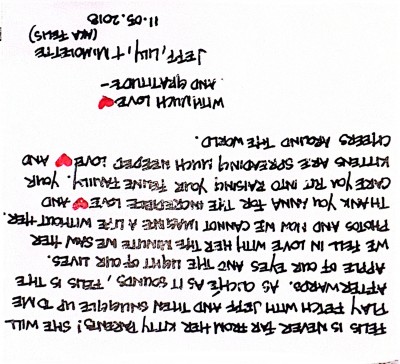 FELIS IS NEVER FAR FROM HER KITTY PARENTS! SHE WILL
PLAY FETCH WITH JEFF AND THEN SNUGGLE UP TO ME
AFTER WARDS. AS CLICHÉ AS IT SOUNDS, FELIS IS THE
APPLE OF OUR EYES AND THE LIGHT OF OUR LIVES.
WE FELL IN LOVE WITH HER THE MINUTE WE SAW HER
PHOTOS AND NOW CANNOT IMAGINE A LIFE WITHOUT HER.
THANK YOU ANNA FOR THE INCREDIBLE LOVE ❤ AND
CARE YOU PUT INTO RAISING YOUR FELINE FAMILY. YOUR
KITTENS ARE SPREADING MUCH NEEDED LOVE ❤ AND
CHEERS AROUND THE WORLD.
WITH MUCH LOVE ❤
AND GRATITUDE-
JEFF, LILY, + MIMOLETTE
(AKA FELIS)
11.05.2018